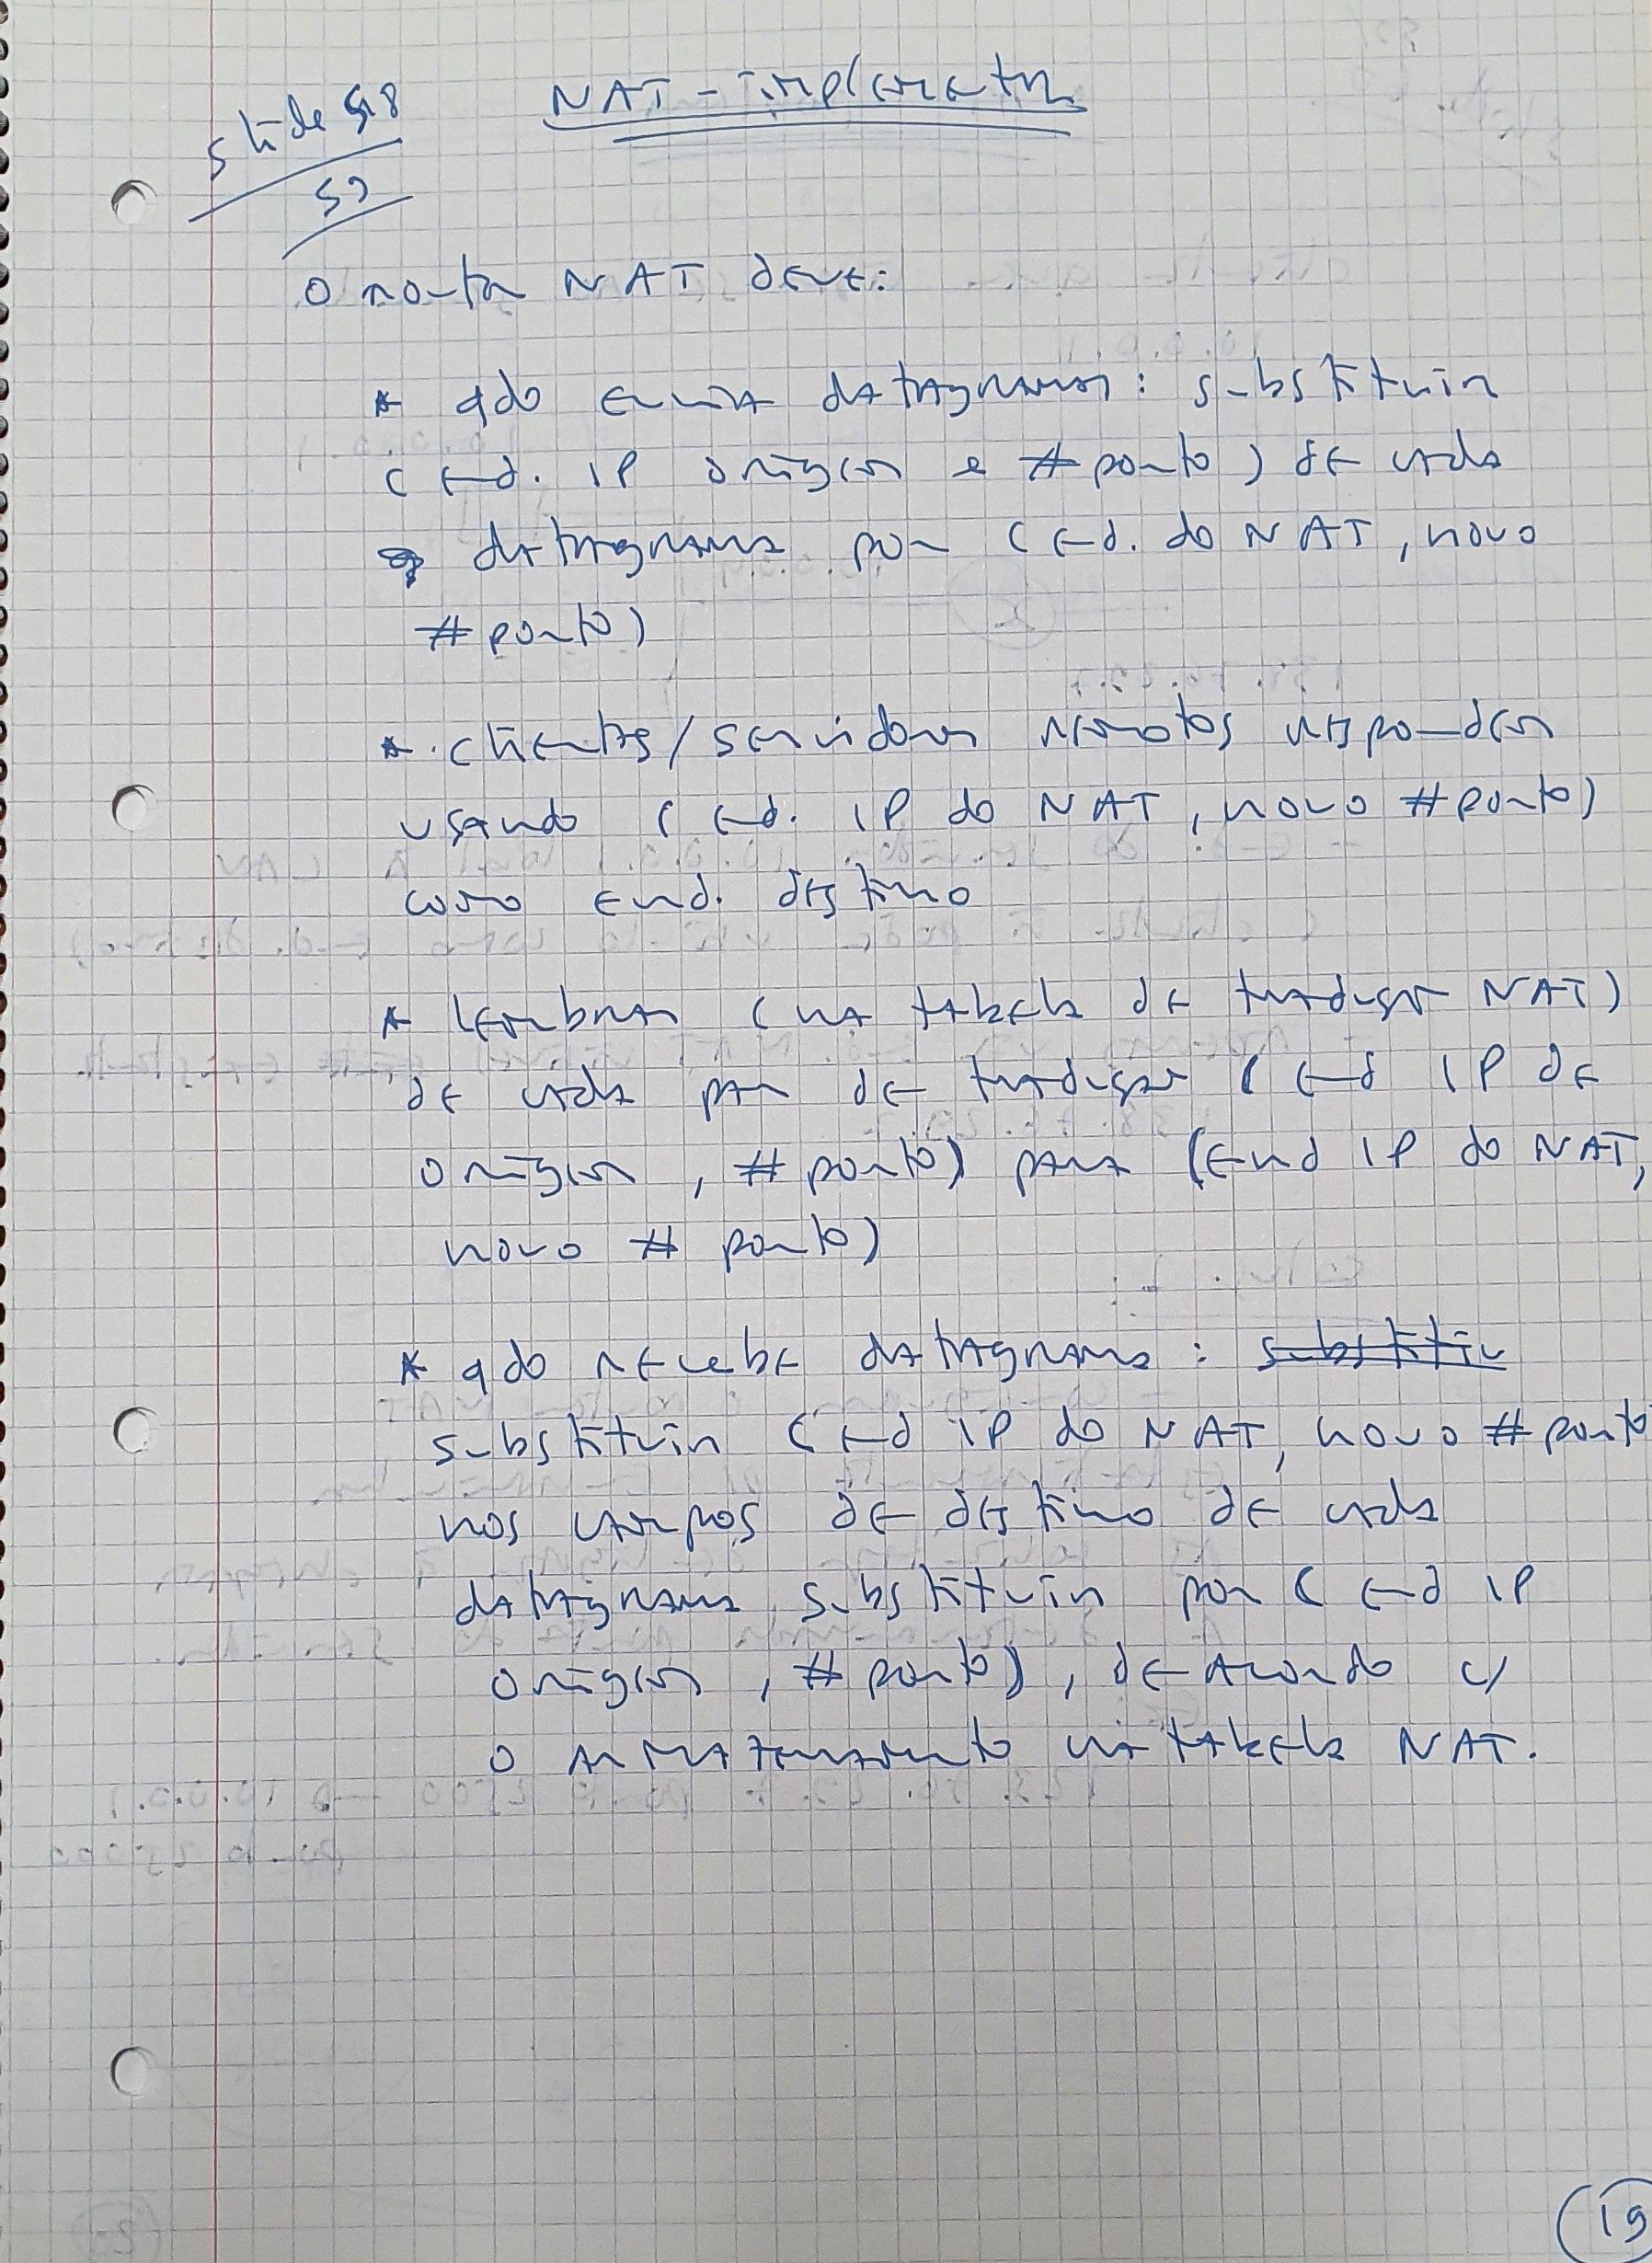 NAT - implementar
slide 58
59
o router NAT deve:
* qdo envia datagramas: substituir
(end. IP origem e #porto) de cada
datagrama por (end. do NAT, novo
#porto)
* clientes/servidores remotos respondem
usando (end. IP do NAT, novo #porto)
como end. destino
* lembrar (na tabela de tradução NAT)
de cada par de tradução (end IP de
origem, #porto) para (end IP do NAT,
novo # porto)
* qdo recebe datagrama: substitiu
substituir (end IP do NAT, novo #porto
nos campos de destino de cada
datagrama substituir por (end IP
origem, #porto), de acordo c/
o armazenamento na tabela NAT.
19